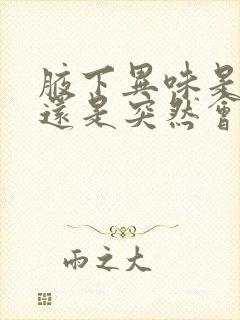 腋下異味是
還是突然會
雨之大